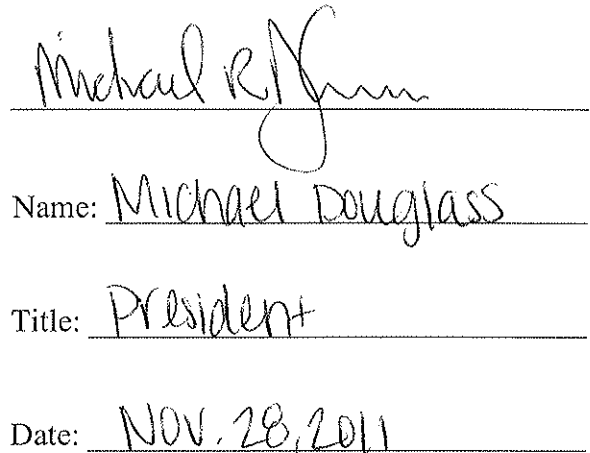 Michael R
Name: Michael Douglass
Title: President
Date: Nov. 28, 2011